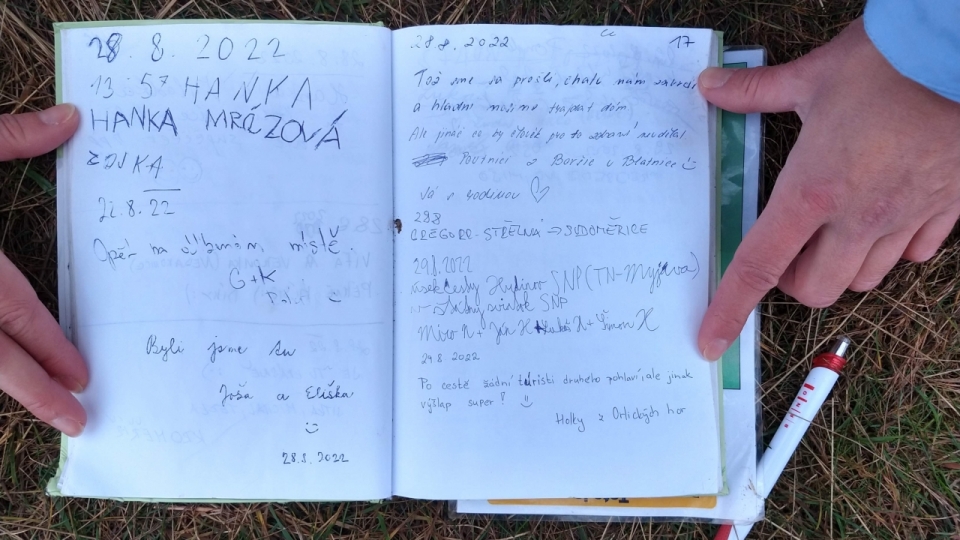 28. 8. 2022
13:57 HANKA
HANKA MRÁZOVÁ
28.8.22
Opět na oblíbeném místě.
G+K
Byli jsme tu
Joža a Eliška
28.8.2022
28.8.2022
17
Tož sme sa prošli, chatu nám zavřeli
a hladní možeme trajdat dom
Ale jináč co by člověk pro to zdraví neudělal
Poutníci z Boršic u Blatnice
Já s rodinou
28.8
GREGOR - STRELNÁ → SUDOMĚŘICE
29.8.2022
SNP (TN-Myjava)
SNP
Miro K + Ján K + Lukáš K + Šimon K
29.8.2022
Po cestě žádní turisti druhého pohlaví, ale jinak
výšlap super!
Holky z Orlických hor